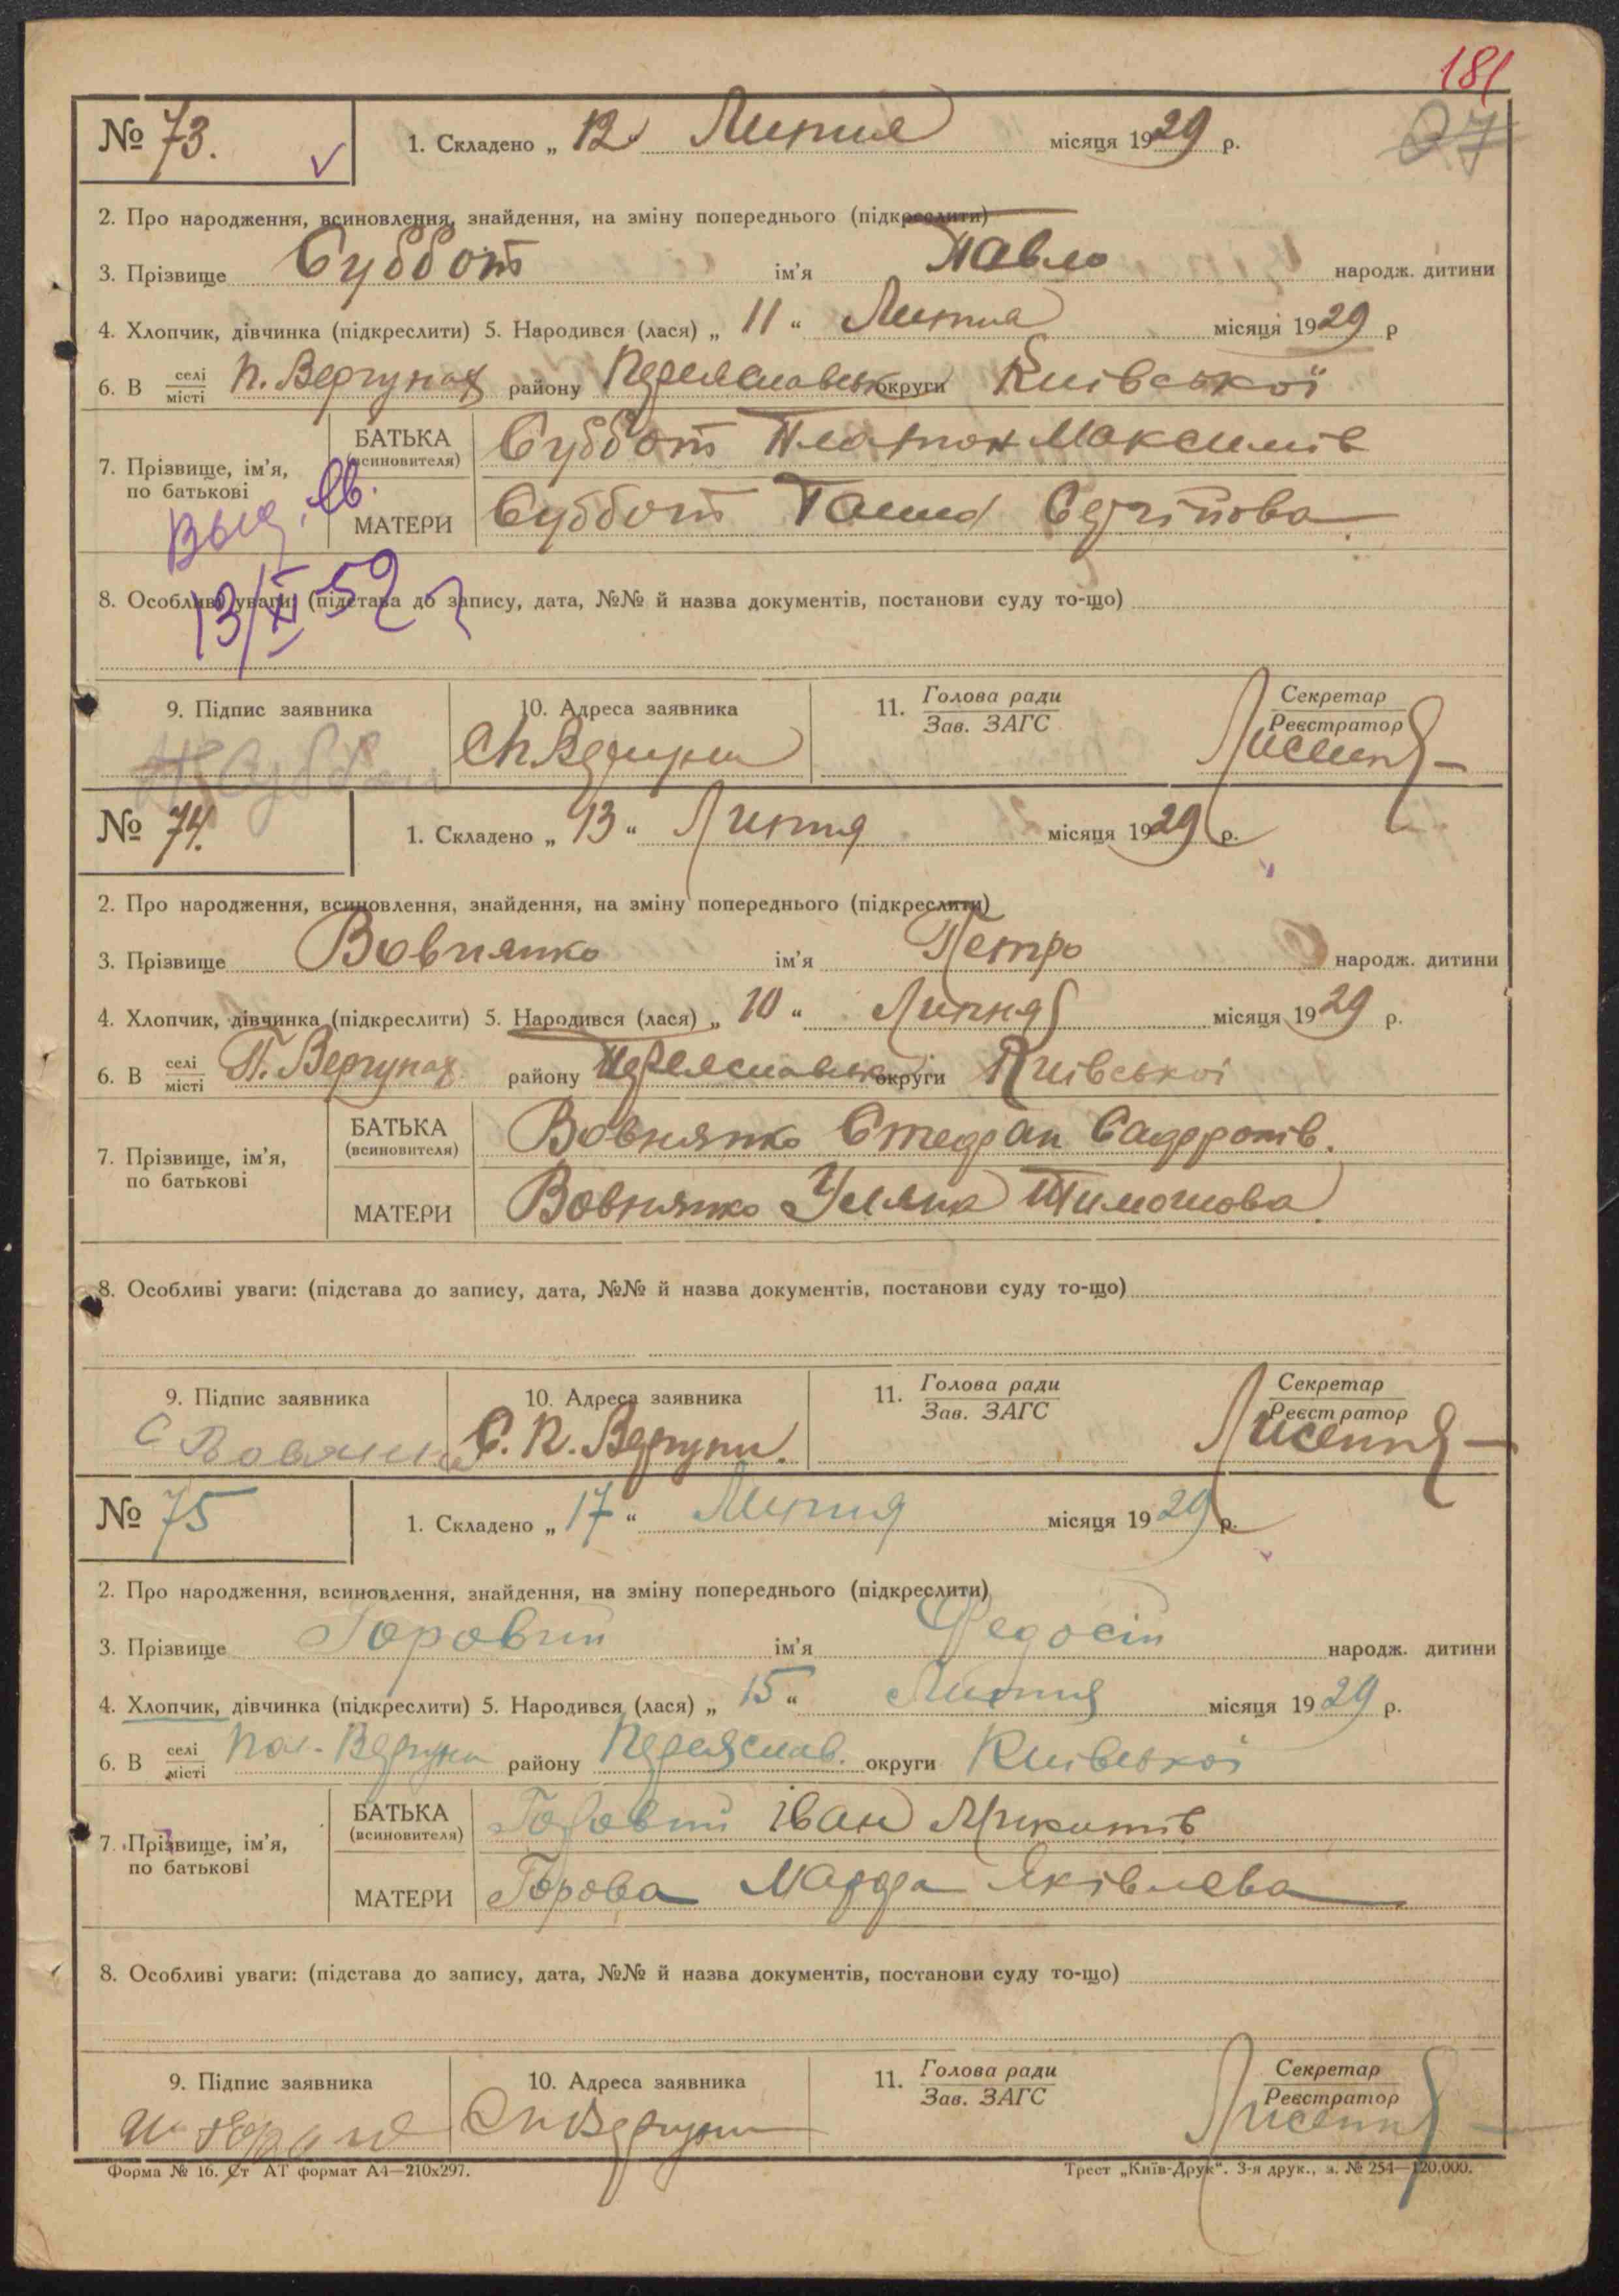 181
№ 73. 1. Складено „ 12 “ Липня місяця 1929 р. 27
2. Про народження, всиновлення, знайдення, на зміну попереднього (підкреслити)
3. Прізвище Суббот ім'я Павло народж. дитини
4. Хлопчик, дівчинка (підкреслити) 5. Народився (лася) „ 11 “ Липня місяця 1929 р
6. В селі/місті П. Вергунах району Переяславськ округи Київської
7. Прізвище, ім'я, по батькові
БАТЬКА (всиновителя) Суббот Платон Максимів
МАТЕРИ Суббот
Выд. св.
13/XI 52
8. Особливі уваги: (підстава до запису, дата, №№ й назва документів, постанови суду то-що)
9. Підпис заявника 10. Адреса заявника 11. Голова ради Секретар
Зав. ЗАГС Реєстратор
С. П. Вергуни
№ 74. 1. Складено „ 13 “ Липня місяця 1929 р.
2. Про народження, всиновлення, знайдення, на зміну попереднього (підкреслити)
3. Прізвище Вовнянко ім'я Петро народж. дитини
4. Хлопчик, дівчинка (підкреслити) 5. Народився (лася) „ 10 “ Липня місяця 1929 р.
6. В селі/місті П. Вергунах району Переяславськ округи Київської
7. Прізвище, ім'я, по батькові
БАТЬКА (всиновителя) Вовнянко Стефан Сафронів.
МАТЕРИ Вовнянко Уляна Тимошова
8. Особливі уваги: (підстава до запису, дата, №№ й назва документів, постанови суду то-що)
9. Підпис заявника 10. Адреса заявника 11. Голова ради Секретар
Зав. ЗАГС Реєстратор
С. П. Вергуни.
№ 75 1. Складено „ 17 “ Липня місяця 1929 р.
2. Про народження, всиновлення, знайдення, на зміну попереднього (підкреслити)
3. Прізвище Горовий ім'я Федосій народж. дитини
4. Хлопчик, дівчинка (підкреслити) 5. Народився (лася) „ 15 “ Липня місяця 1929 р.
6. В селі/місті Пол. Вергуни району Переяслав. округи Київської
7. Прізвище, ім'я, по батькові
БАТЬКА (всиновителя) Горовий Іван Микитів
МАТЕРИ Горова Марфа Яківлева
8. Особливі уваги: (підстава до запису, дата, №№ й назва документів, постанови суду то-що)
9. Підпис заявника 10. Адреса заявника 11. Голова ради Секретар
Зав. ЗАГС Реєстратор
С П Вергуни
Форма № 16. Ст АТ формат А4—210х297. Трест „Київ-Друк“. 3-я друк., з. № 254—120.000.